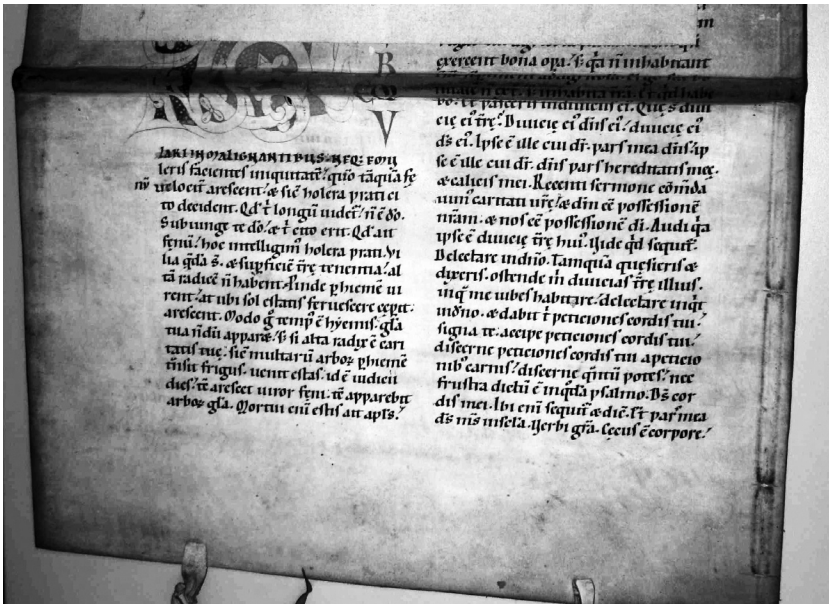 R
V
LARI IN MALIGNANTIBUS. NEQ: EMU
leris facientes iniquitatē. qm̄ tāquā fę
nū velocit̄ arescent. & sic̄ holera prati ci
to decident. Qd t̄ longū videt̄. n̄ ē dō.
Subiunge te dō. & t̄ cito erit. Qd ait
fenū. hoc intelligim᷒ holera prati. Vi
lia qdā s̄. & sup̄ficiē t̄rę tenentia. al
tā radicē n̄ habent. Proinde p̄ hiemē vi
rent. at ubi sol estatis fervescere cęperit.
arescent. Modo g̊ temp᷒ ē hyemis. gl̄a
tua n̄dū apparet. S; si alta radix ē cari
tatis tuę. sic̄ multarū arboꝝ p̄ hiemē
t̄nsit frigus. venit estas. id ē iudicii
dies. tc̄ arescet viror feni. tc̄ apparebit
arboꝝ gl̄a. Mortui enī estis ait apl̄s.
exercent bona opa. S; qa n̄ inhabitant
eię ei᷒ t̄rę. Divicię ei᷒ dn̄s ei᷒. divicię ei᷒
ds̄ ei᷒. Ipse ē ille cui dr̄. pars mea dn̄s. ip
se ē ille cui dr̄. dn̄s pars hereditatis meę.
& calicis mei. Recenti sermone cōm̄da
vim᷒ caritati vr̄ę. & dm̄ eē possessionē
nr̄am. & nos eē possessionē dī. Audi qa
ipse ē divicię t̄rę hui᷒. Vide qd sequit̄.
Delectare in dn̄o. Tamquā quesieris &
dixeris. ostende m̄ divicias t̄rę illius.
in q me iubes habitare. delectare inqt
in dn̄o. & dabit t̄ peticiones cordis tui.
signat̄e. accipe peticiones cordis tui.
discerne peticiones cordis tui a peticio
nib᷒ carnis. discerne qntū potes. nec
frustra dictū ē in qdā psalmo. Ds̄ cor
dis mei. Ibi enī sequit̄ & dic̄. Et pars mea
ds̄ in sc̄la. Verbi gr̄a. Cęcus ē corpore.